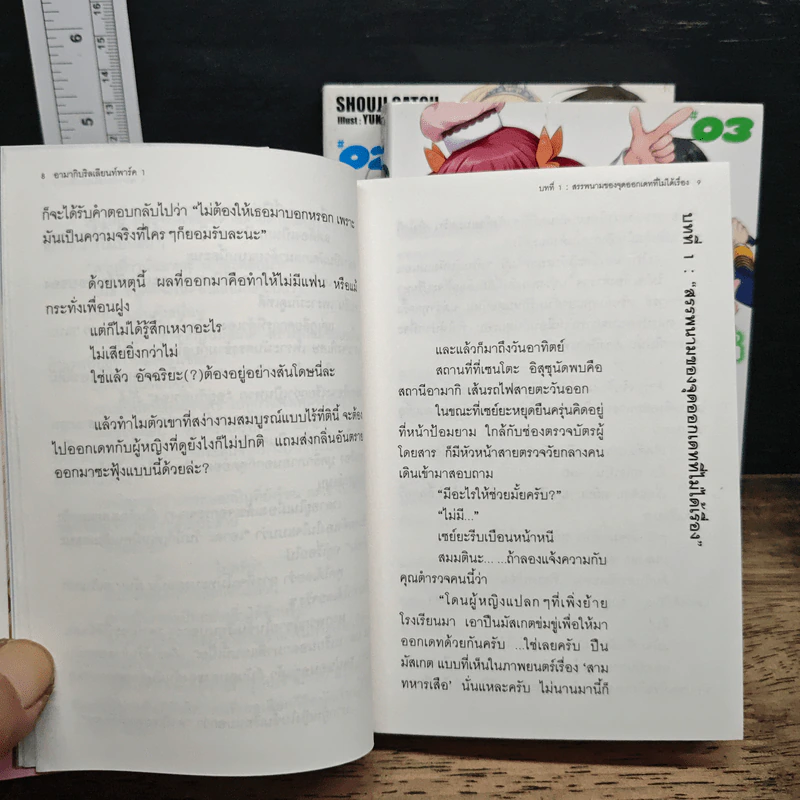 6
5
16
15
14
13
12
SHOUJI GATOU
Illust : YUK
#02
#03
8 อามากิบริลเลียนท์พาร์ค 1
ก็จะได้รับคำตอบกลับไปว่า “ไม่ต้องให้เธอมาบอกหรอก เพราะ
มันเป็นความจริงที่ใคร ๆก็ยอมรับละนะ”
ด้วยเหตุนี้ ผลที่ออกมาคือทำให้ไม่มีแฟน หรือแม้
กระทั่งเพื่อนฝูง
แต่ก็ไม่ได้รู้สึกเหงาอะไร
ไม่เสียยิ่งกว่าไม่
ใช่แล้ว อัจฉริยะ(?)ต้องอยู่อย่างสันโดษนี่ละ
แล้วทำไมตัวเขาที่สง่างามสมบูรณ์แบบไร้ที่ตินี้ จะต้อง
ไปออกเดทกับผู้หญิงที่ดูยังไงก็ไม่ปกติ แถมส่งกลิ่นอันตราย
ออกมาซะฟุ้งแบบนี้ด้วยล่ะ?
บทที่ 1 : สรรพนามของจุดออกเดทที่ไม่ได้เรื่อง 9
บทที่ 1 : “สรรพนามของจุดออกเดทที่ไม่ได้เรื่อง”
และแล้วก็มาถึงวันอาทิตย์
สถานที่ที่เซนโตะ อิสุซุนัดพบคือ
สถานีอามากิ เส้นรถไฟสายตะวันออก
ในขณะที่เซย์ยะหยุดยืนครุ่นคิดอยู่
ที่หน้าป้อมยาม ใกล้กับช่องตรวจบัตรผู้
โดยสาร ก็มีหัวหน้าสายตรวจวัยกลางคน
เดินเข้ามาสอบถาม
“มีอะไรให้ช่วยมั้ยครับ?”
“ไม่มี...”
เซย์ยะรีบเบือนหน้าหนี
สมมตินะ... ...ถ้าลองแจ้งความกับ
คุณตำรวจคนนี้ว่า
“โดนผู้หญิงแปลก ๆที่เพิ่งย้าย
โรงเรียนมา เอาปืนมัสเกตข่มขู่เพื่อให้มา
ออกเดทด้วยกันครับ ...ใช่เลยครับ ปืน
มัสเกต แบบที่เห็นในภาพยนตร์เรื่อง ‘สาม
ทหารเสือ’ นั่นแหละครับ ไม่นานมานี้ก็